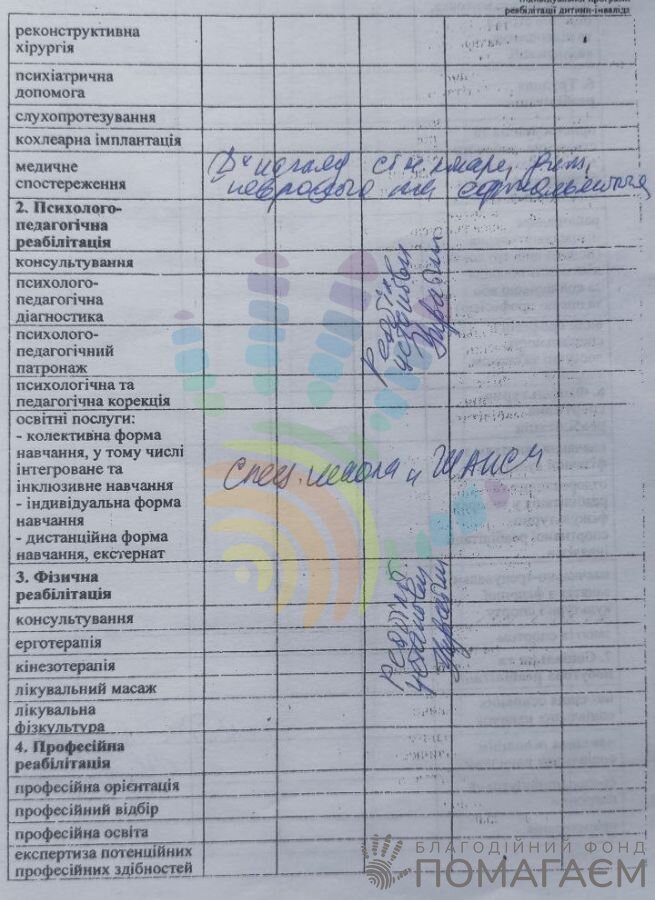 Індивідуальної програми
реабілітації дитини-інваліда
реконструктивна
хірургія
психіатрична
допомога
слухопротезування
кохлеарна імплантація
медичне
спостереження
2. Психолого-
педагогічна
реабілітація
консультування
психолого-
педагогічна
діагностика
психолого-
педагогічний
патронаж
психологічна та
педагогічна корекція
освітні послуги:
- колективна форма
навчання, у тому числі
інтегроване та
інклюзивне навчання
- індивідуальна форма
навчання
- дистанційна форма
навчання, екстернат
Спец. школа "Шанси"
3. Фізична
реабілітація
консультування
ерготерапія
кінезотерапія
лікувальний масаж
лікувальна
фізкультура
4. Професійна
реабілітація
професійна орієнтація
професійний відбір
професійна освіта
експертиза потенційних
професійних здібностей
БЛАГОДІЙНИЙ ФОНД
ПОМАГАЄМ